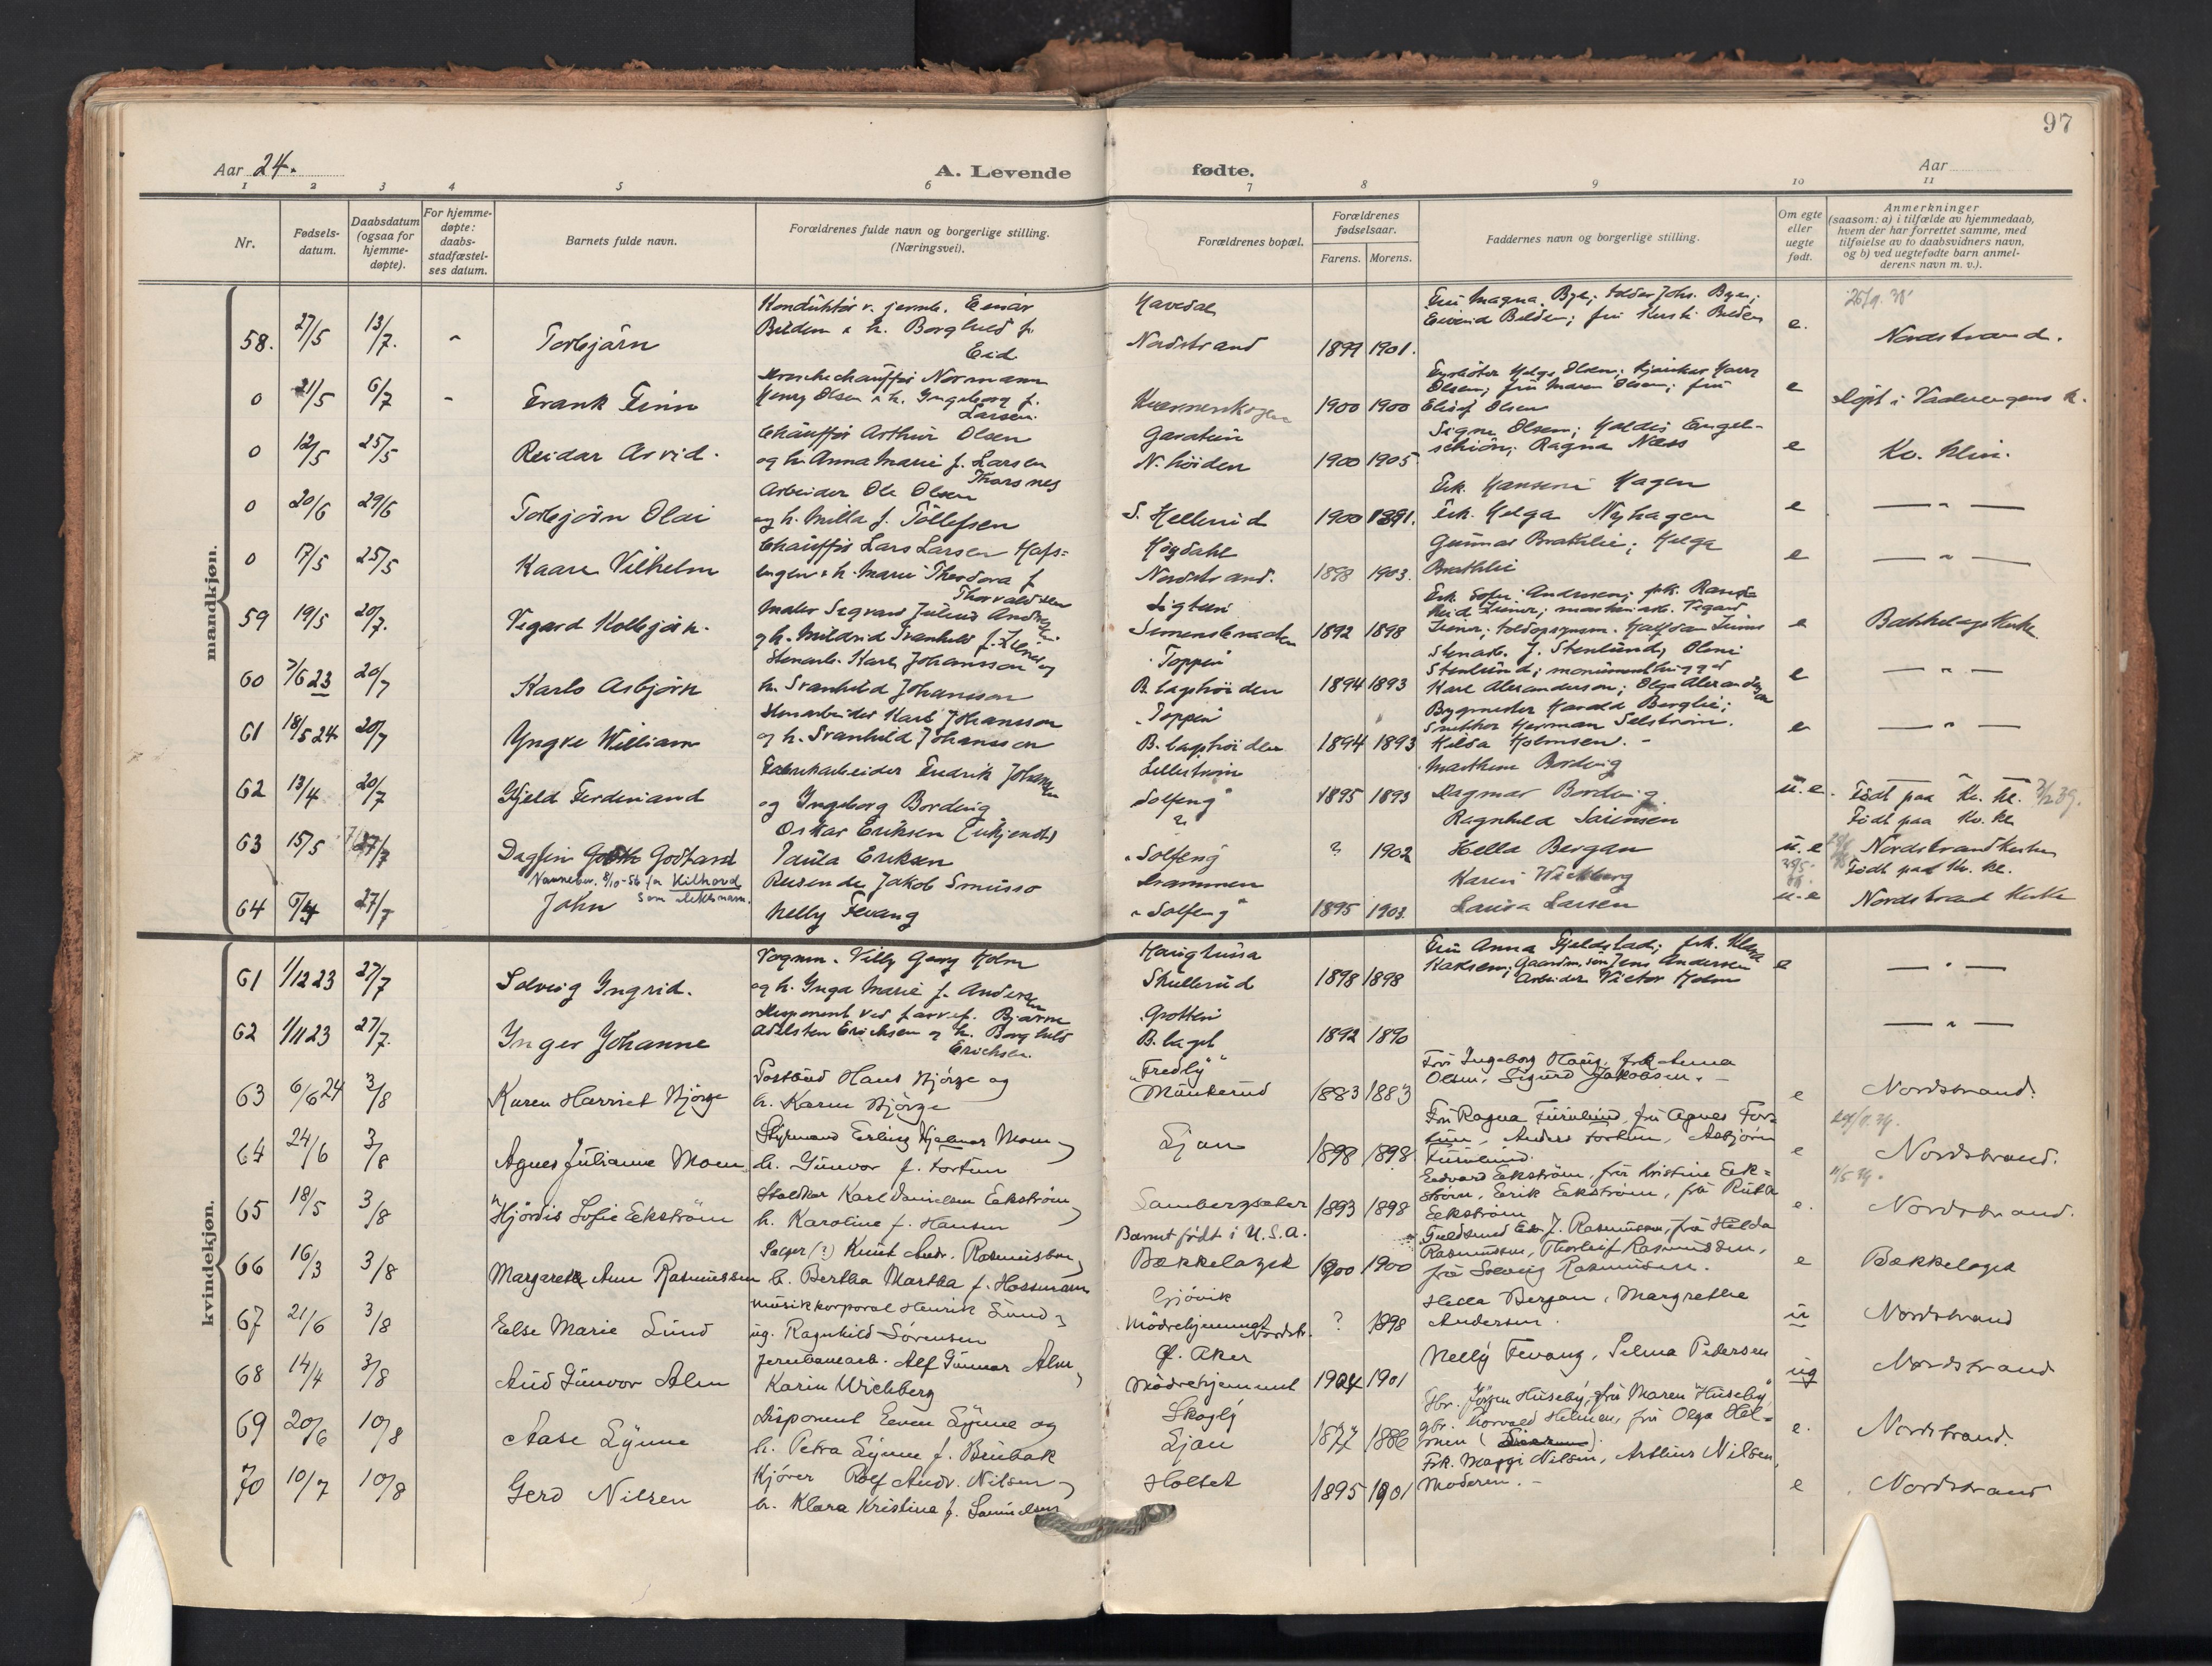 97
Aar 24.
A. Levende
fødte.
Aar
1 2 3 4 5 6 7 8 9 10 11
Nr.
Fødsels-
datum.
Daabsdatum
(ogsaa for
hjemme-
døpte).
For hjemme-
døpte:
daabs-
stadfæstel-
ses datum.
Barnets fulde navn.
Forældrenes fulde navn og borgerlige stilling.
(Næringsvei).
Forældrenes bopæl.
Forældrenes
fødselsaar.
Farens. Morens.
Faddernes navn og borgerlige stilling.
Om egte
eller
uegte
født.
Anmerkninger
(saasom: a) i tilfælde av hjemmedaab,
hvem der har forrettet samme, med
tilføielse av to daabsvidners navn,
og b) ved uegtefødte barn anmel-
derens navn m. v.).
mandkjøn.
58. 27/5 13/7. - Torbjørn
Konduktør v. jernb. Einar
Belden & h. Borghild f.
Eid
Nordstrand
1899 1901.
Fru Magna Bye; Johs. Bye;
Eivind Belden; fru Belden
e.
Nordstrand.
0 21/5 6/7 - Frank Finn
Droschechauffør Normann
Henry Olsen & h. Ingeborg f.
Larsen.
1900 1900
Olsen; fru Maren Olsen; fru
Olsen
e
i Vaalerengens k.
0 12/5 25/5 Reidar Arvid.
Chauffør Arthur Olsen
og h. Anna Marie f. Larsen
Thorsnes
N. høiden
1900 1905
Signe Olsen; Haldis Engel-
schiøn; Ragna Næss
e
Kv. klin.
0 20/6 29/6 Torbjørn Olai
Arbeider Ole Olsen
og h. Milla f. Tollefsen
S. Hellerud
1900 1891.
Frk. Hagen
Frk. Helga Nyhagen
e
— " —
0 17/5 25/5 Kaare Vilhelm
Chauffør Lars Larsen Hafs-
lengen & h. Marie Theodora f.
Thorvaldsen
Høgdahl
Nordstrand.
1898 1903.
Gunnar Brathlie; Helga
Brathlie
e
— " —
59 19/5 20/7. Vegard Kolbjørn.
Maler Sigvard Julius
og h. Mildrid Svanhild f.
Ligtun
1892 1898
Frk. Andersen; frk.
e
Bækkelags Kirke.
60 7/6 23 20/7 Karlo Asbjørn
Stenarb. Karl Johansson og
h. Svanhild Johansson
"Toppen"
B. lagshøiden
1894 1893
Stenarb. J. Stenlund; Oline
Stenlund;
Karl Aleranderson; Olga
e
— " —
61 18/5 24 20/7 Yngve William
Stenarbeider Karl Johansson
og h. Svanhild Johansson
"Toppen"
B. lagshøiden
1894 1893
Bygmester Harald Berglie;
Snekker Herman Selstrøm.
Hilda Holmsen. -
e
— " —
62 13/4 20/7 Kjeld Ferdinand
Fabrikarbeider Fredrik Johansen
og Ingeborg Bordvig
Lillestrøm
"Solfeng"
1895 1893
Marthine Bordvig
Dagmar Bordvig
u.e.
Født paa Kv. kl.
63 15/5 27/7 Dagfin Godtard
Navnebev. 8/10-56 for Kilhovd
som slektsnavn.
Oskar Eriksen (ukjendt)
Paula Eriksen
?
"Solfeng"
? 1902
Ragnhild Sørensen
Hella Bergan
u.e
Født paa Kv. kl.
Nordstrand kirke
64 27/7 John
Reisende Jakob Smusso
Nelly Fevang
Drammen
"Solfeng"
1895 1903.
Karen Wichberg
Laura Larsen
u.e
Født paa Kv. kl.
Nordstrand Kirke
kvindekjøn.
61 1/12 23 27/7 Solveig Ingrid.
Vognm. Villy Georg Holm
og h. Inga Marie f. Andersen
Haugtussa
Skullerud
1898 1898
Fru Anna Fjeldstad; frk. Klara
Karlsen; Gaardm. søn Jens Andersen
Arbeider Victor Holm
e
— " —
62 1/11 23 27/7. Inger Johanne
Disponent ved farvef. Bjarne
Adelsten Erichsen og h. Borghild
Erichsen.
"Grotten"
B. laget
1892 1890
— " —
63 6/6 24 3/8 Karen Harriet Bjørge
Postbud Hans Bjørge og
h. Karen Bjørge
"Fredly"
Munkerud
1883 1883
Fru Ingeborg Haug, frk Anna
Olsen, Sigurd Jakobsen. -
e
Nordstrand.
64 24/6 3/8 Agnes Julianne Moen
Styrmand Erling Hjalmar Moen
h. Gunvor f. Fortun
Ljan
1898 1898
Fru Ragna Furulund, fru Agnes For-
tun, Anders Fortun, Asbjørn
Furulund.
e
Nordstrand.
65 18/5 3/8 Hjørdis Sofie Eekstrøm
Karl Danielsen Eekstrøm,
h. Karoline f. Hansen
Lambergsæter
1893 1898
Edvard Eekstrøm, fru Kristine Eek-
strøm, Eerik Eekstrøm, fru Ruth
Eekstrøm
e.
Nordstrand.
66 16/3 3/8 Margareth Ann Rasmussen
Sælger (?) Knut Andr. Rasmussen,
h. Bertha Martha f. Hossmann
Barnet født i U.S.A.
Bækkelaget
1900 1900
Guldsmed J. Rasmussen, fru Hilda
Rasmussen, Thorleif Rasmussen,
fru Solveig Rasmussen.
e
Bekkelaget
67 21/6 3/8 Eelse Marie Lund
Musikkorporal Henrik Lund,
ug. Ragnhild Sørensen
Gjøvik
Mødrehjemmet Nordstr.
? 1898
Hella Bergan, Margrethe
Andersen.
u
Nordstrand
68 14/4 3/8 Aud Gunvor Alm
Jernbanearb. Alf Gunnar Alm,
Karin Wichberg
Ø. Aker
Mødrehjemmet
1904 1901
Nelly Fevang, Selma Pedersen
ug
Nordstrand
69 20/6 10/8 Aase Lynne
Disponent Even Lynne og
h. Petra Lynne f. Brubak
Skogly
Ljan
1877 1886
Gbr. Jørgen Huseby, fru Maren Huseby,
gbr. Thorvald Helmen, fru Olga Hel-
men
e.
Nordstrand.
70 10/7 10/8 Gerd Nilsen
Kjører Rolf Andr. Nilsen,
h. Klara Kristine f. Samuelsen
Holtet
1895 1901
Frk. Maggi Nilsen, Arthur Nilsen,
Moderen. -
e
Nordstrand